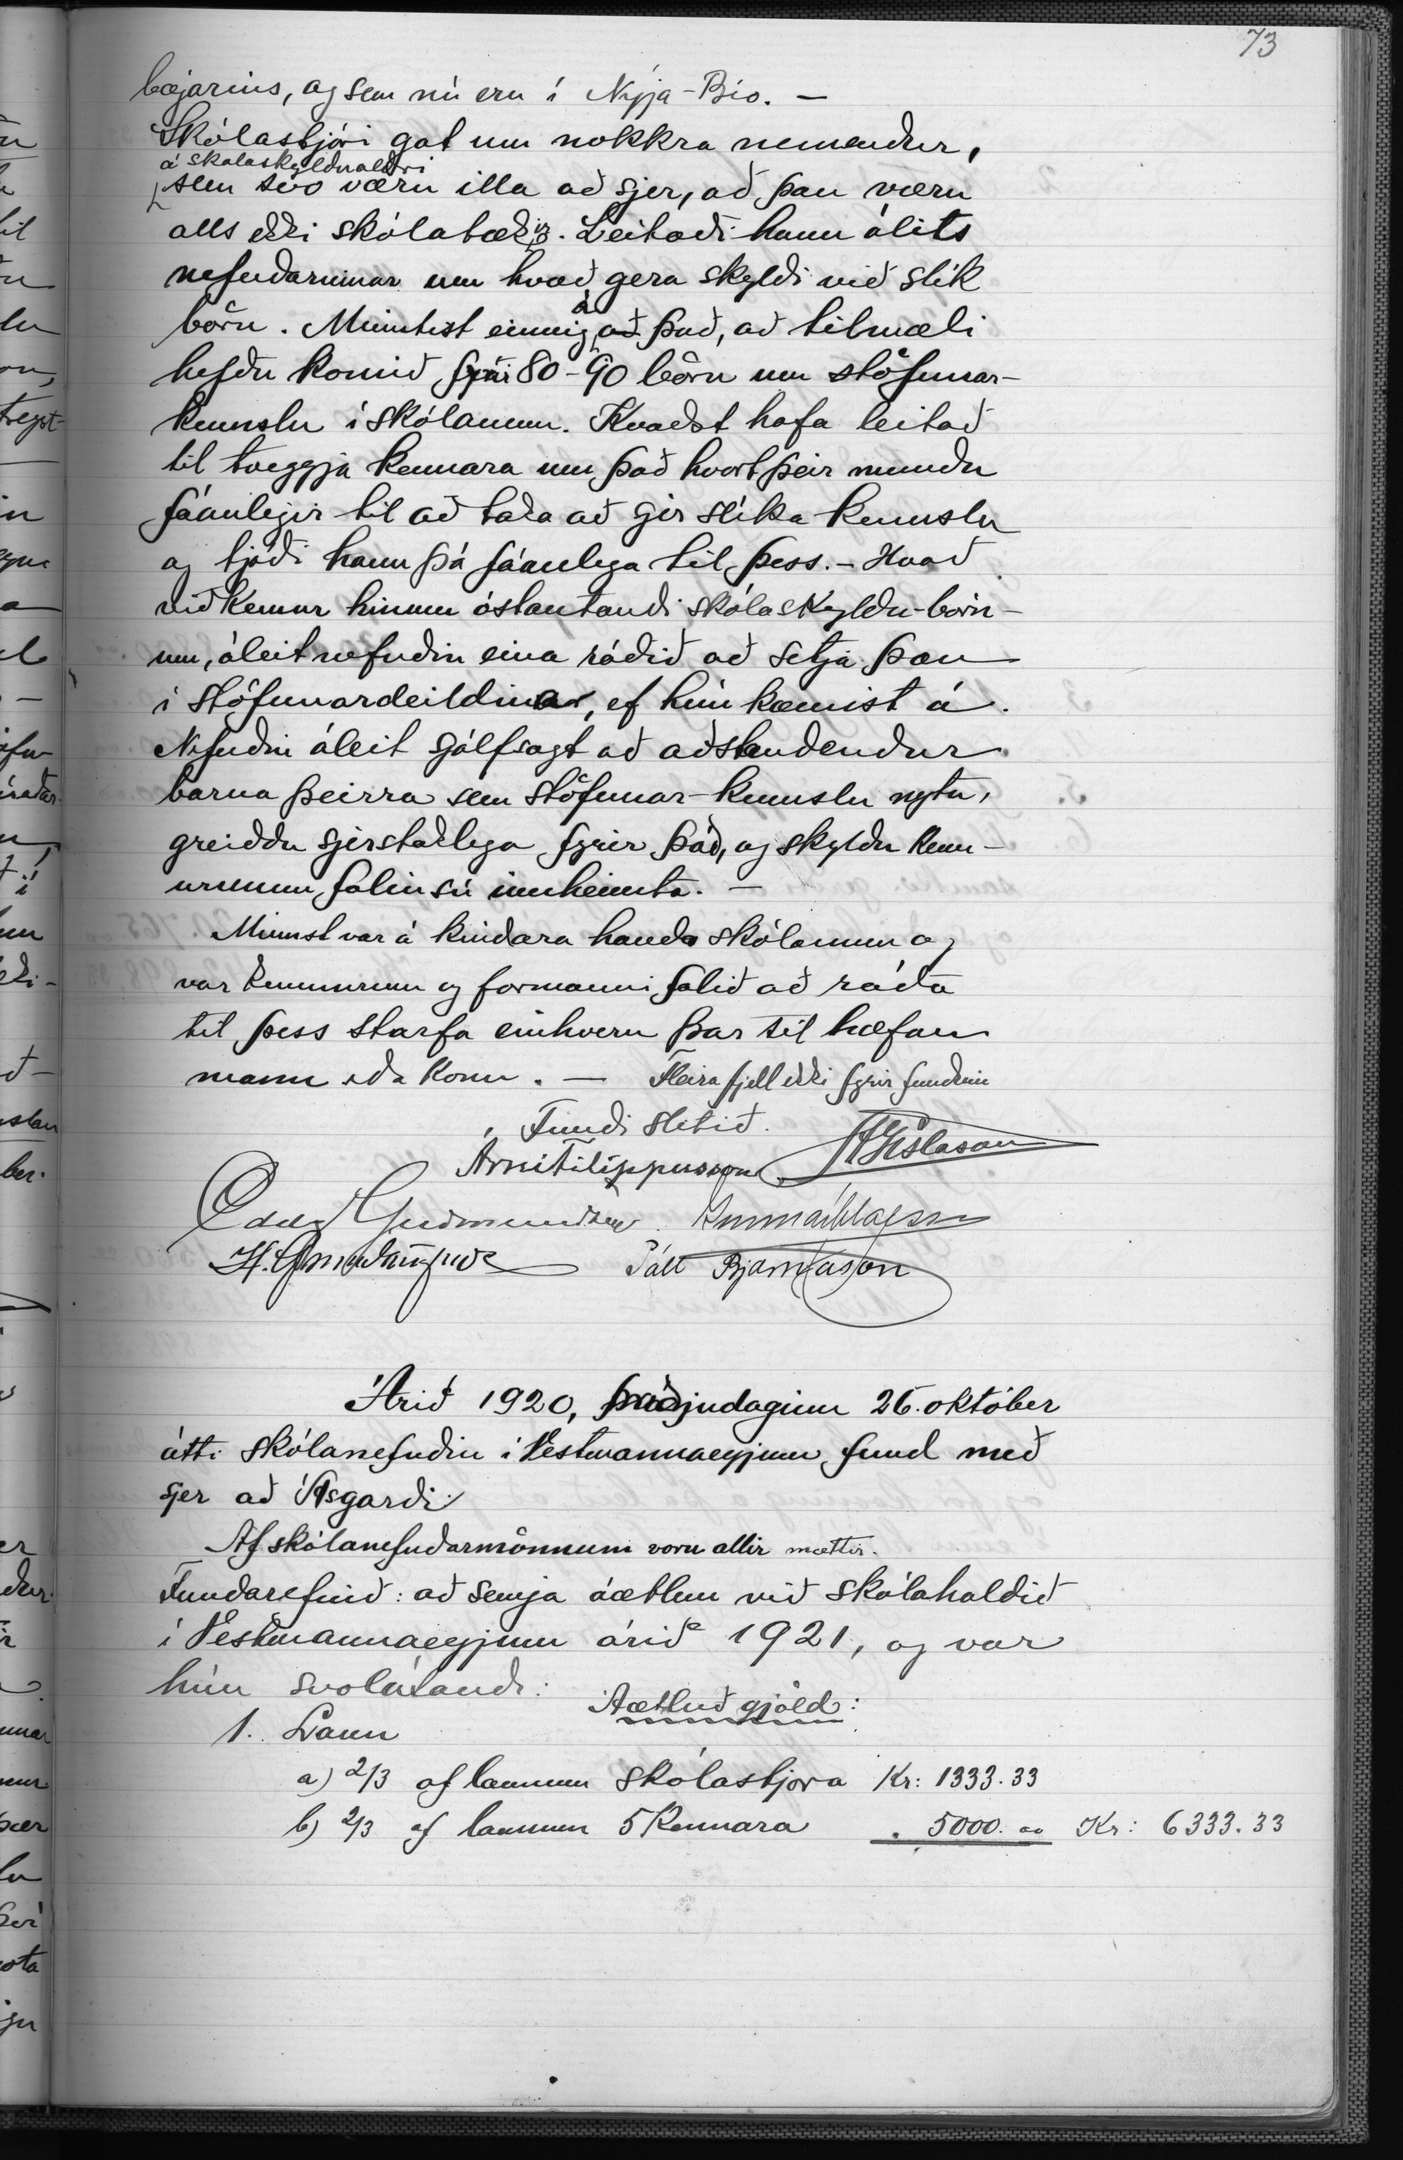 73
bæjarins, og sem nú eru í Nýja-Bio. —
Skólastjóri gat um nokkra nemendur,
á skólaskyldualdri
sem svo væru illa að sjer, að þau væru
alls ekki skólatæk. Leitaði hann álits
nefndarinnar um hvað gera skyldi við slík
börn. Mintist einnig á það, að tilmæli
hefðu komið fyrir 80-90 börn um stöfunar-
kennslu í skólanum. Kvaðst hafa leitað
til tveggja kennara um það hvort þeir mundu
fáanlegir til að taka að sjer slíka kennslu
og tjáði hann þá fáanlega til þess. - Hvað
við kemur hinum óstautandi skólaskyldu-börn-
um, áleit nefndin eina ráðið að setja þau
í stöfunardeildina, ef hún kæmist á.
Nefndin áleit sjálfsagt að aðstendendur
barna þeirra sem stöfunar-kennslu nytu,
greiddu sjerstaklega fyrir það, og skyldu kenn-
urunum falin sú innheimta. —
Minnst var á kindara handa skólanum og
var kennurum og formanni falið að ráða
til þess starfa einhvern þar til hæfan
mann eða konu. — Fleira fjell ekki fyrir fundinn
Fundi slitið.
Árni Filippusson JGíslason
Eday Guðmundsson. Gunnar Ólafsson
Páll Bjarnason
Árið 1920, þriðjudaginn 26. október
átti skólanefndin í Vestmannaeyjum fund með
sjer að Ásgarði.
Af skólanefndarmönnum voru allir mættir.
Fundarefnið: að semja áætlun við skólahaldið
í Vestmannaeyjum árið 1921, og var
hún svolátandi:
Áætluð gjöld:
1. Laun
a) 2/3 af launum skólastjóra Kr: 1333.33
b) 2/3 af launum 5 kennara . 5000.00 Kr: 6333.33